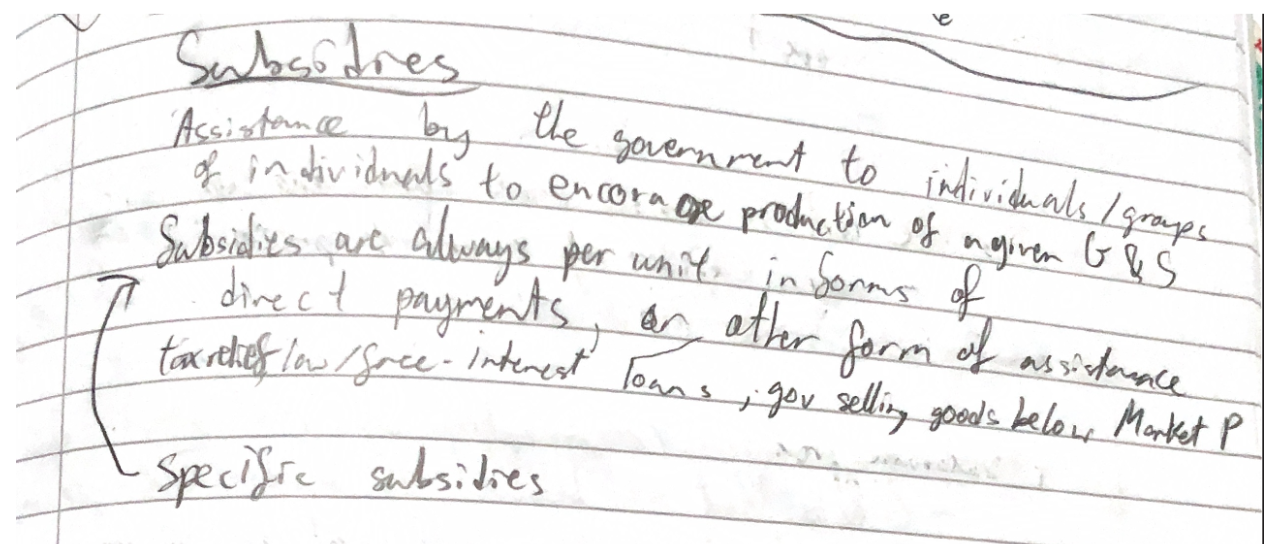 Subsidies
Assistance by the government to individuals/groups
of individuals to encorage production of a given G & S
Subsidies are always per unit in forms of
direct payments, or other form of assistance
tax relief, low/free-interest loans, gov selling goods below Market P
Specific subsidies